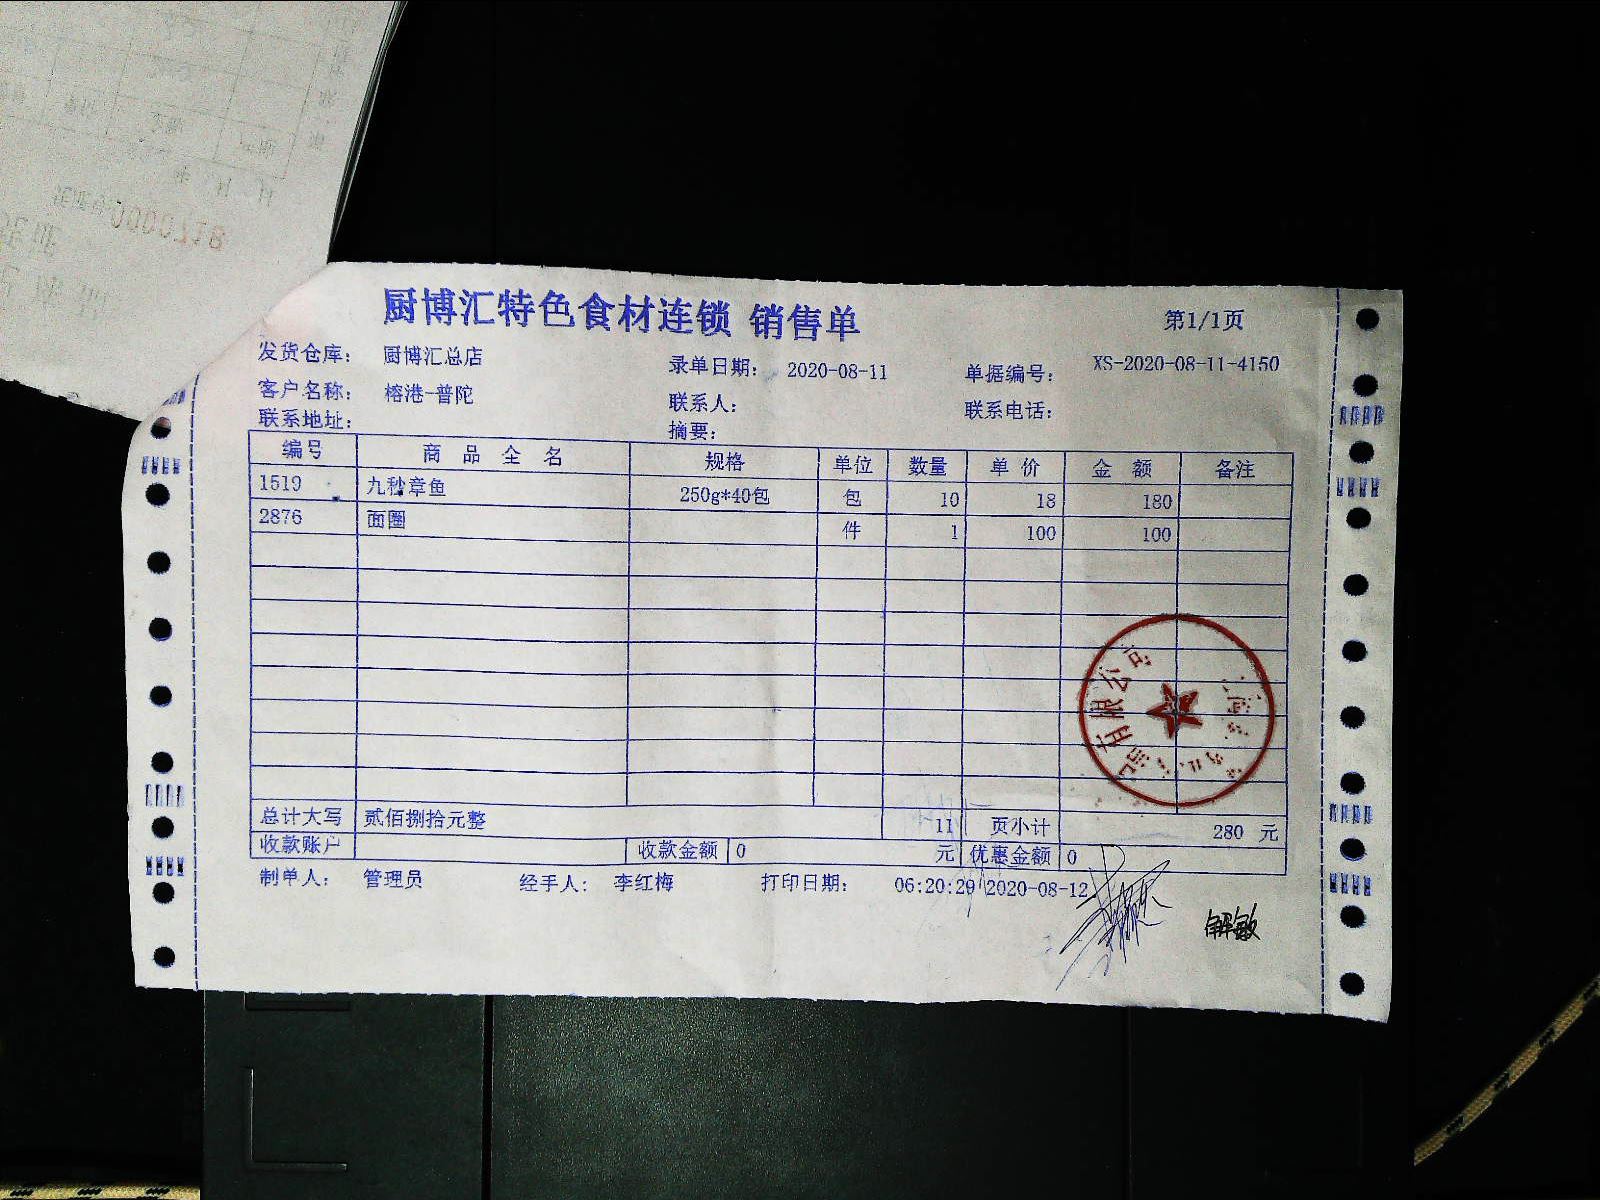 厨博汇特色食材连锁 销售单 第1/1页
发货仓库: 厨博汇总店 录单日期: 2020-08-11 单据编号: XS-2020-08-11-4150
客户名称: 榕港-普陀 联系人: 联系电话:
联系地址: 摘要:
编号 商品全名 规格 单位 数量 单价 金额 备注
1519 九秒章鱼 250g*40包 包 10 18 180
2876 面圈 件 1 100 100
总计大写 贰佰捌拾元整 11 页小计 280 元
收款账户 收款金额 0 元 优惠金额 0
制单人: 管理员 经手人: 李红梅 打印日期: 06:20:29 2020-08-12
解敏
有限公司
0000718